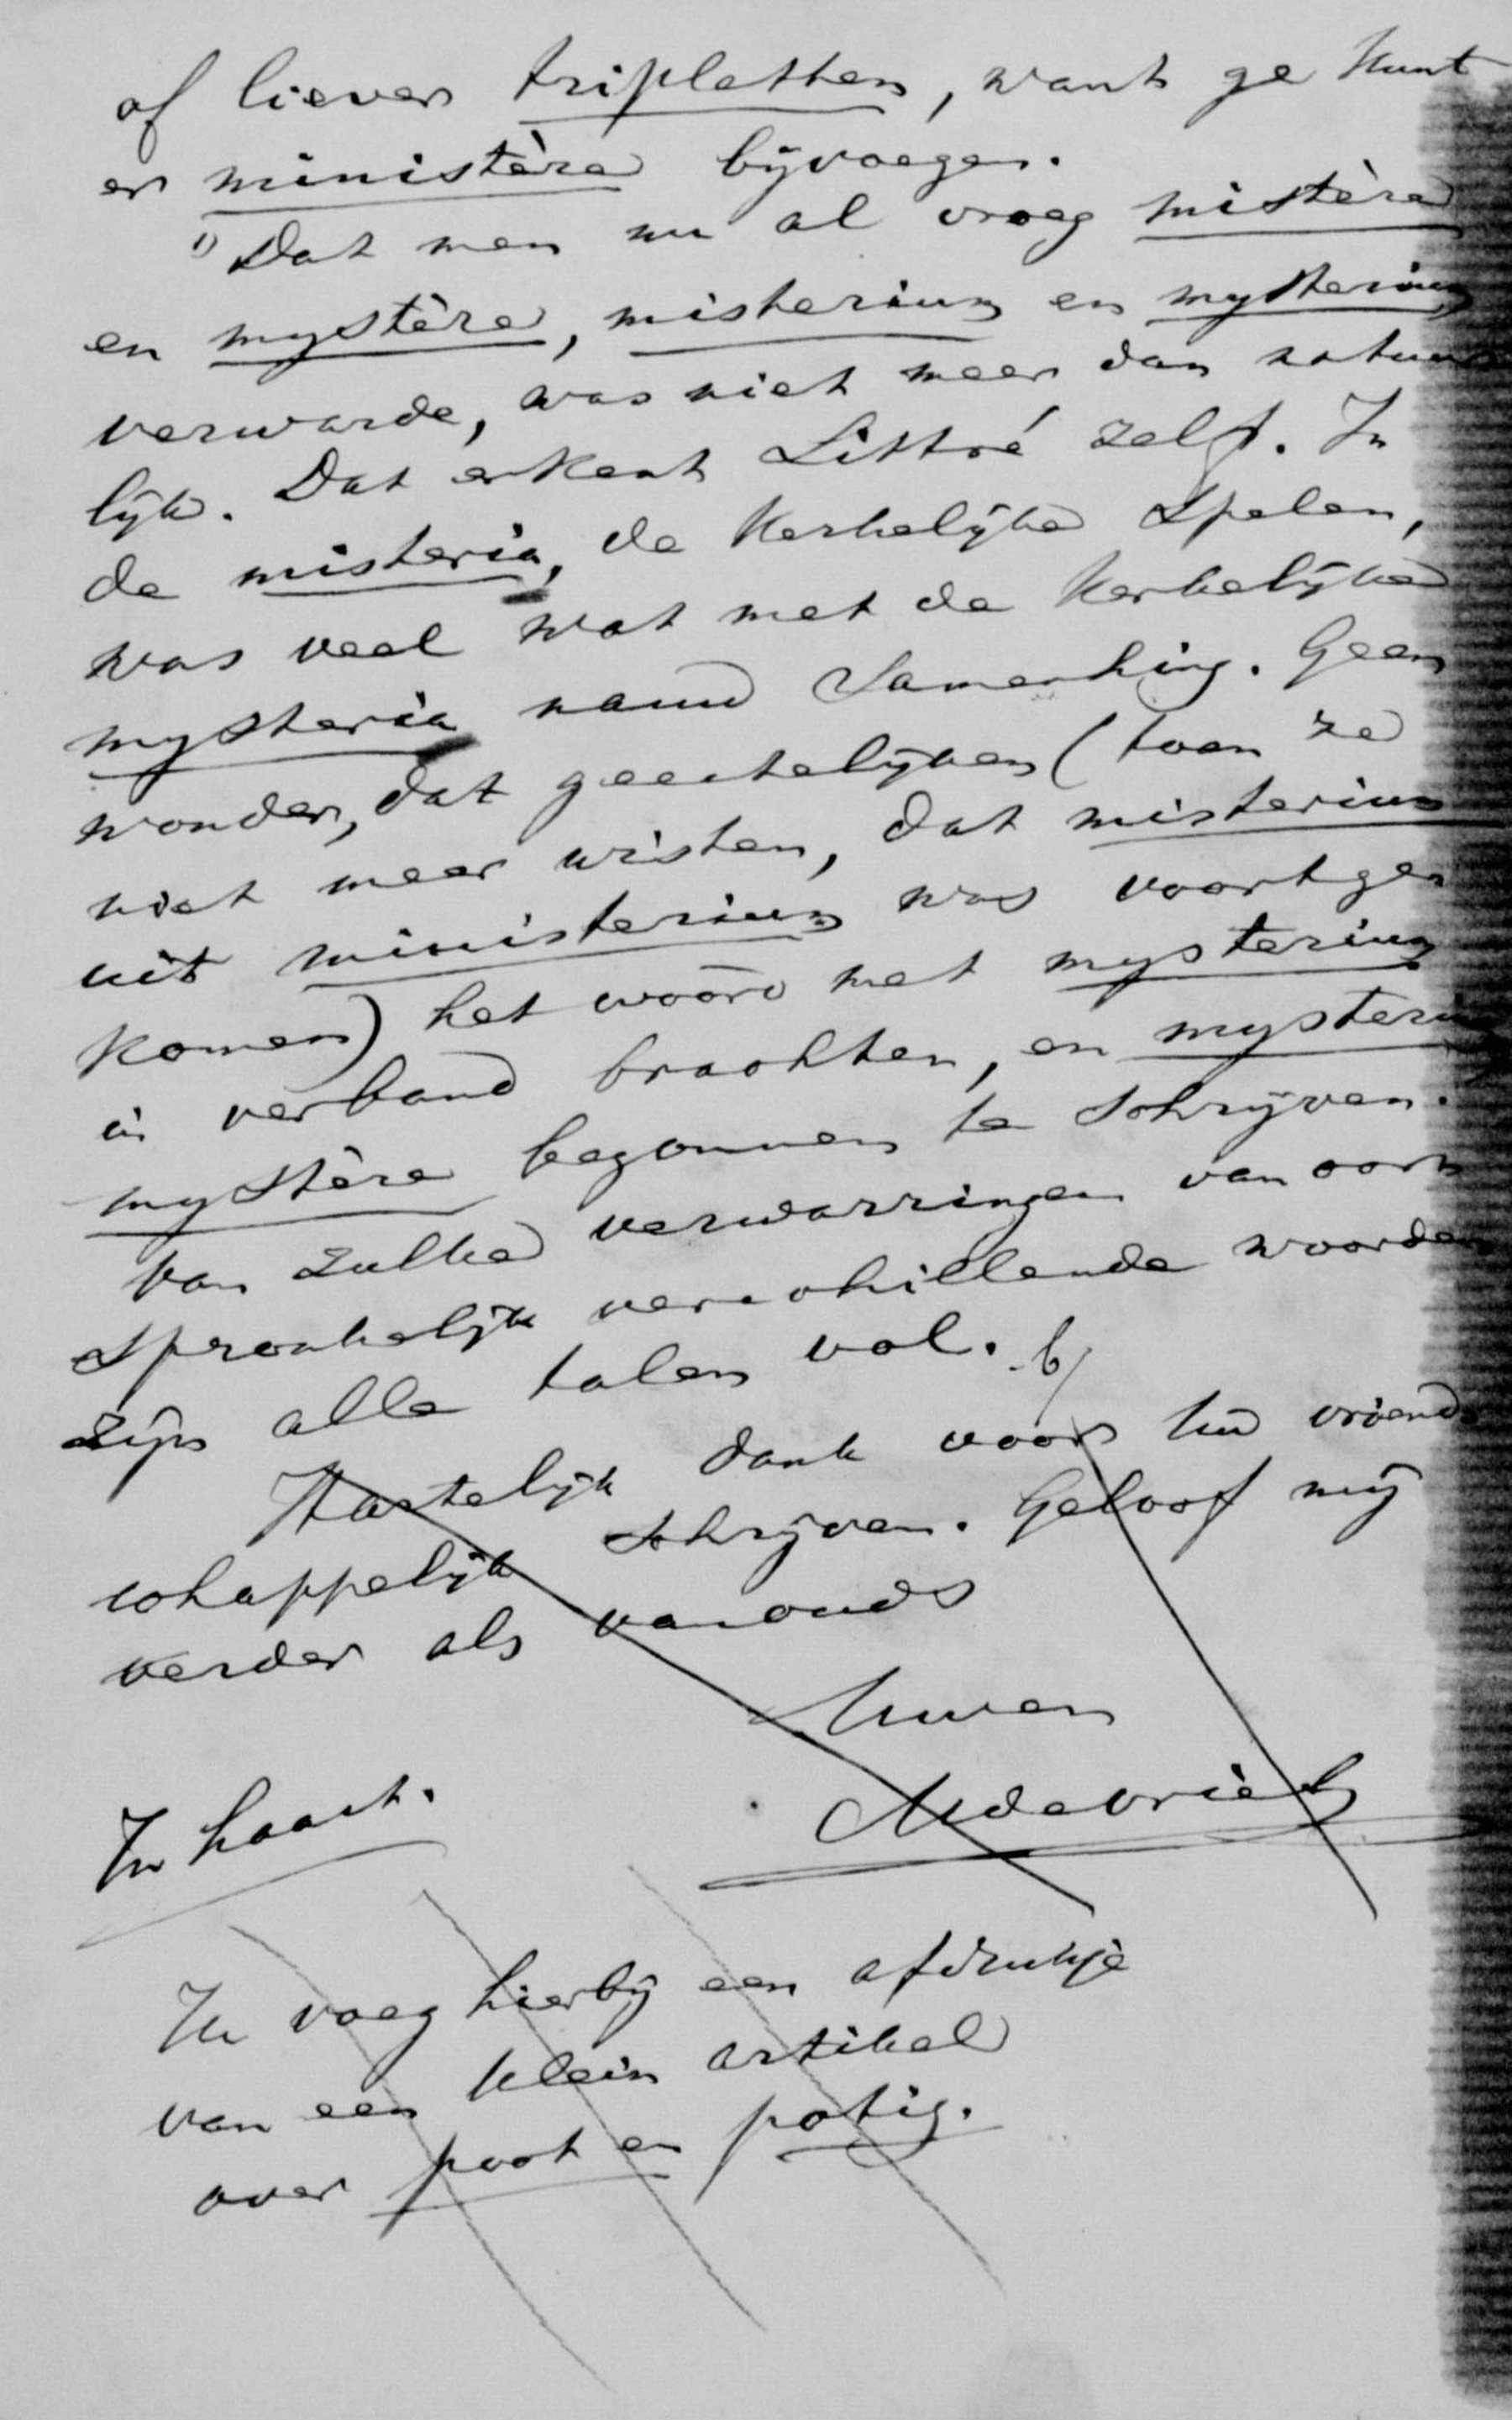 of liever tripletten, want ge kunt
er ministère bijvoegen.
1) Dat men nu al vroeg mistère
en mystère, misterium en mysterium
verwarde, was niet meer dan natuur
lijk. Dat erkent Littré zelf. In
de misteria, de kerkelijke spelen,
was veel wat met de kerkelijke
mysteria nauw samenhing. Geen
wonder, dat geestelijken (toen ze
niet meer wisten, dat misterium
uit ministerium was voortge
komen) het woord met mysterium
in verband brachten, en mysterium
mystère begonnen te schrijven.
Van zulke verwarringen van oor
spronkelijk verschillende woorden
zijn alle talen vol. b)
Hartelijk dank voor Uw vriend
schappelijk schrijven. Geloof mij
verder als vanouds
Uwen
MdeVries
In haast.
Ik voeg hierbij een afdrukje
van een klein artikel
over poot en potig.